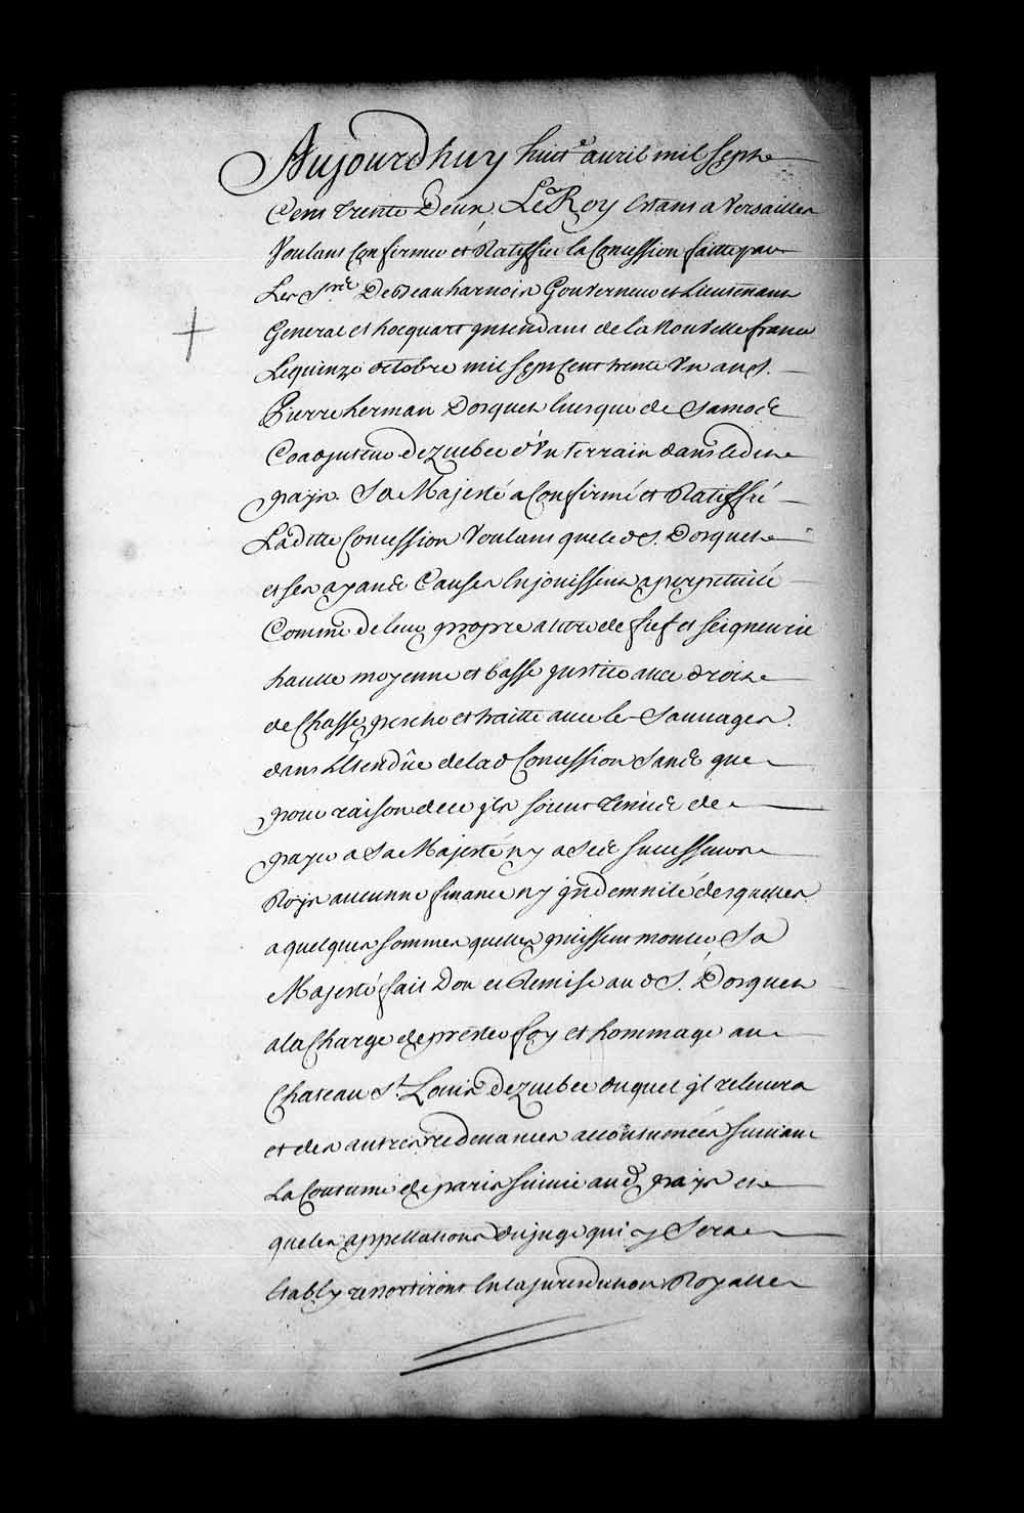 Aujourdhuy huit.e auril mil Sept
Cens trente Deux, Le Roy Estans a Versailles
Voulant Confirmer et Ratiffier la Concession faitte par
Les Srs De Beauharnois Gouverneur et Lieutenant
General et hocquart jntendant de la Nouvelle france
Le quinze octobre mil Sept Cent trente Un au S.
Pierre herman Dosquet Euesque de Samos
Coadjuteur de Quebec d'Un terrain dans ledit
pays. Sa Majesté a Confirmé et Ratiffié
Laditte Concession Voulant que led. S. Dosquet
et ses ayans Causes En jouissent a perpetuité
Comme de leur propre a titre de fief et seigneurie
haulte moyenne et basse justice auec droit
de Chasse, pesche et traitte auec les Sauuages
dans L'Etendüe de lad. Concession Sans que
pour raison de ce jls soient tenus de
payer a Sa Majesté ny a Ses successeurs
Roys aucunne finance ny jndemnité desquelles
a quelques sommes quelles puissent monter, Sa
Majesté fait Don et Remise au d. S. Dosquet
a la Charge de prester foy et hommage au
Chateau St. Louis de Quebec duquel jl releuera
et des autres redeuances accoutumées suiuant
La Coutume de paris suiuie aud. pays et
que les appellations du juge qui y Sera
Etably ressortiront En la jurisdiction Royalle